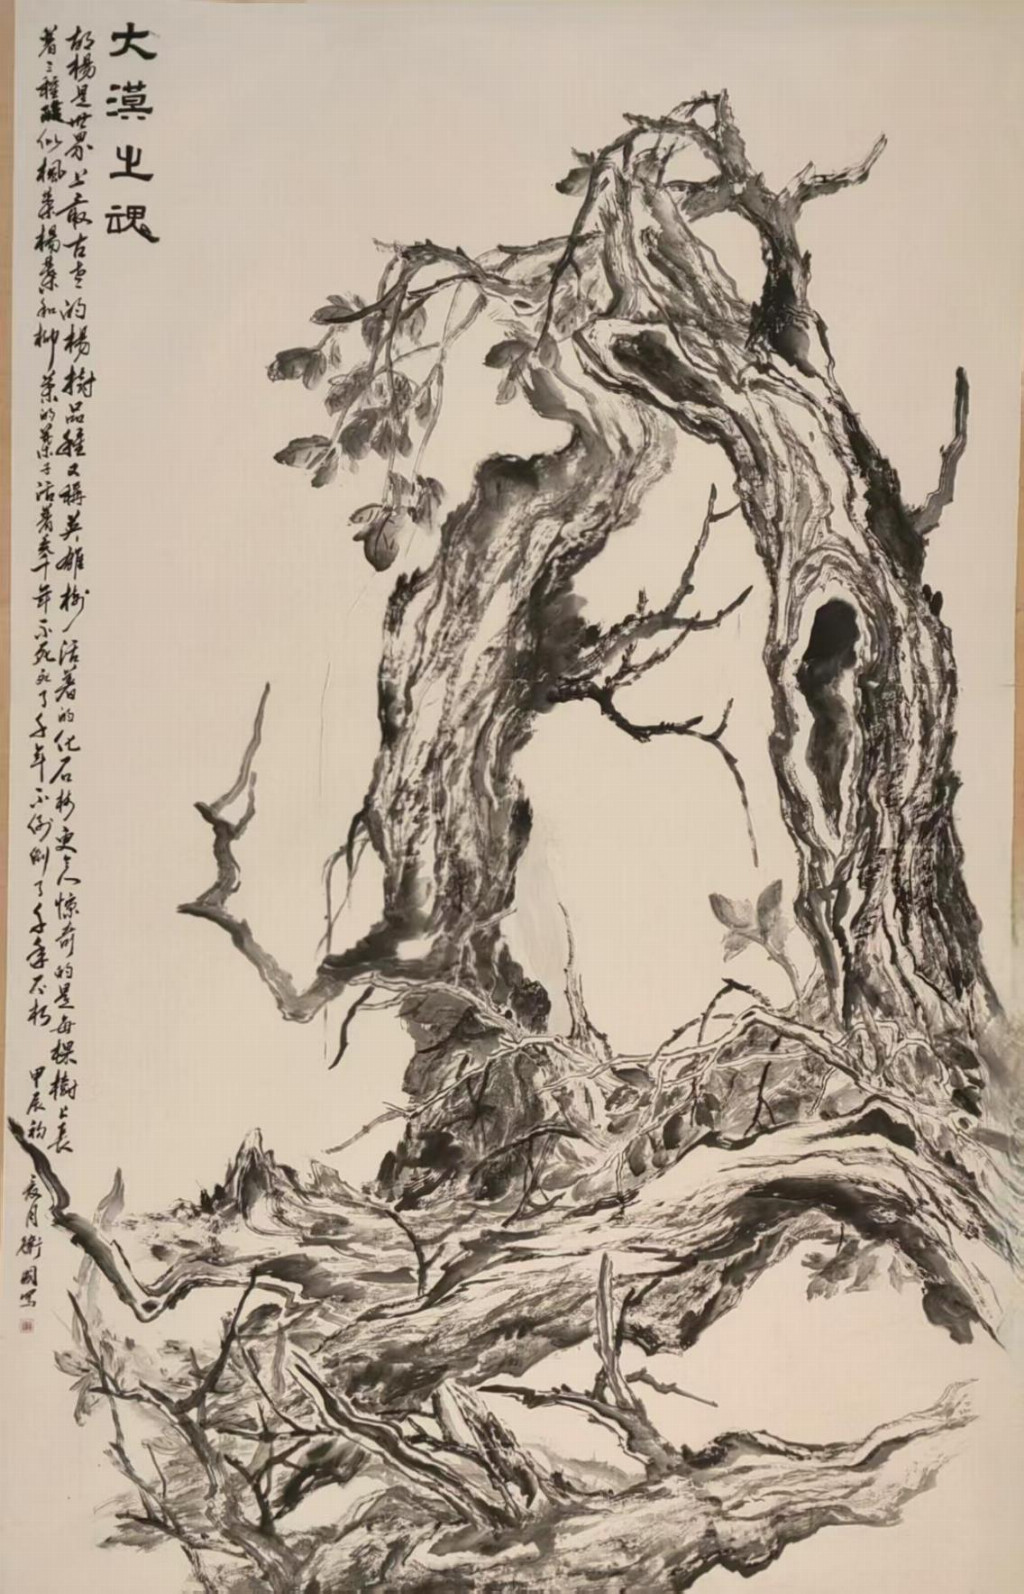 大漠之魂
胡楊是世界上最古老的楊樹品種又稱英雄樹活着的化石樹更令人惊奇的是每棵樹上長
着三種酷似楓葉楊葉和柳葉的葉子活着叁千年不死死了千年不倒倒了千年不朽 甲辰初夏月衛國寫